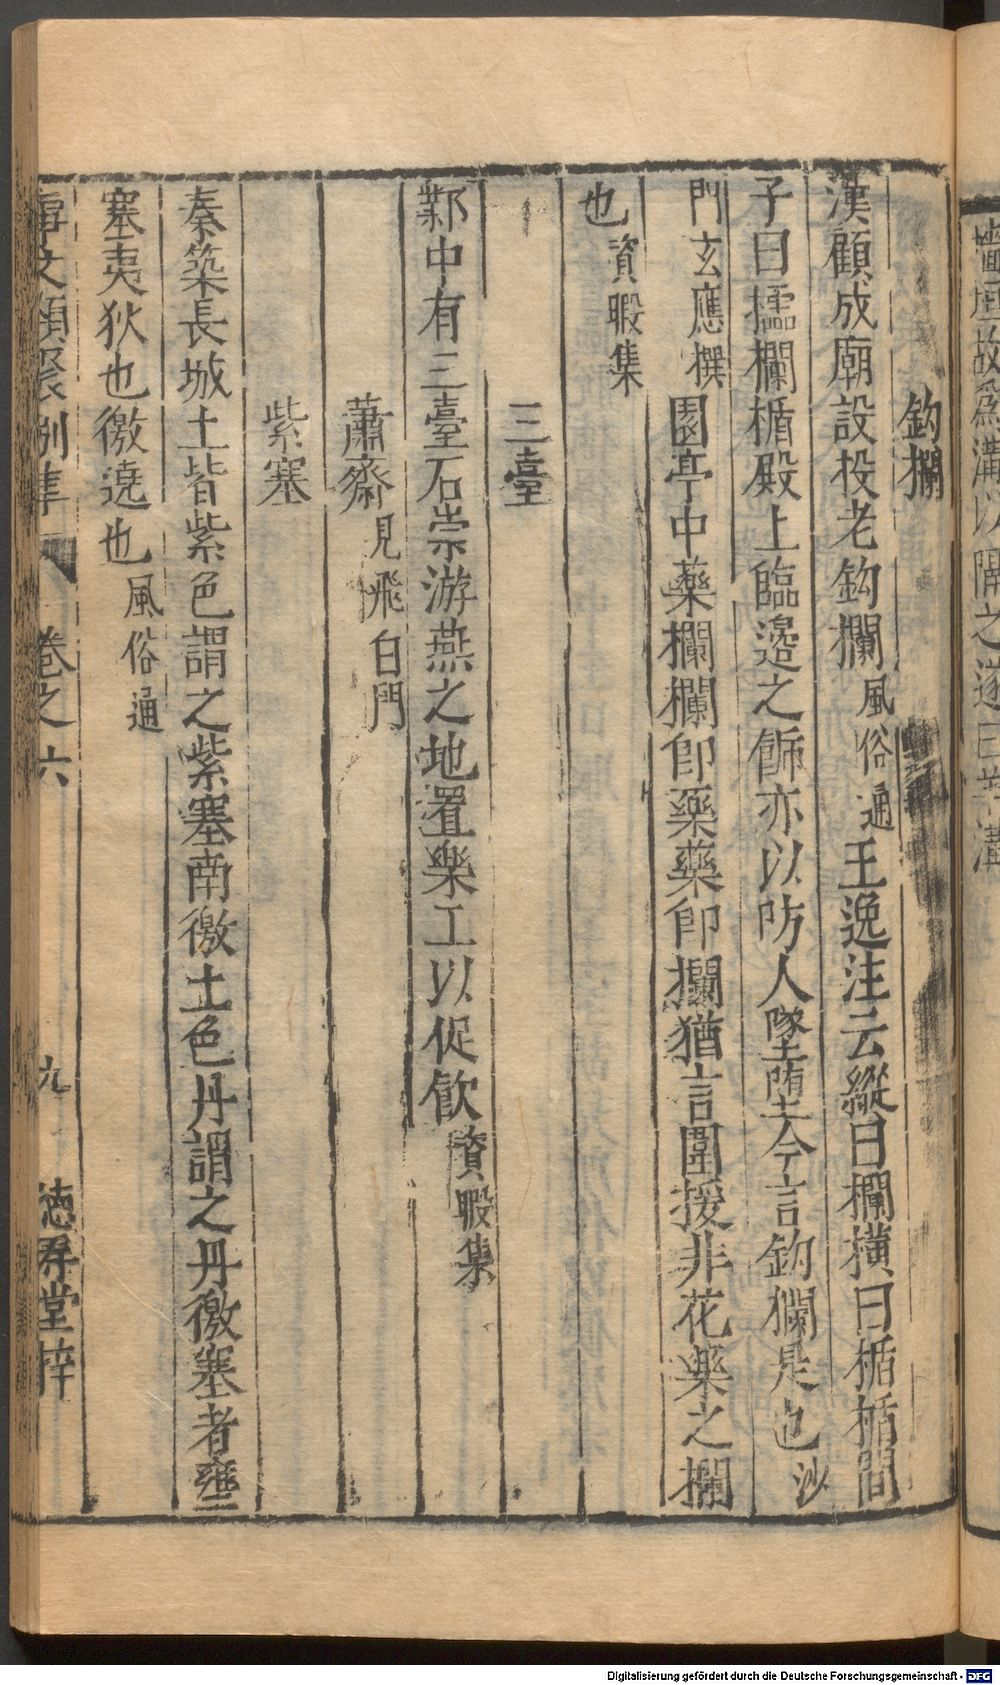 鈎欄
漢顧成廟設投老鈎欄風俗通王逸注云縱曰欄橫曰楯楯間
子曰𣠷欄楯殿上臨邉之飾亦以防人墜堕今言鈎欄是也沙
門玄應撰園亭中藥欄欄卽藥藥卽欄猶言圍援非花藥之欄
也資暇集
三臺
鄴中有三臺石崇游燕之地置樂工以促飲資暇集
蕭齋見飛白門
紫塞
秦築長城土皆紫色謂之紫塞南徼土色丹謂之丹徼塞者壅
塞夷狄也徼遶也風俗通
事文類聚別集 卷之六 九 徳壽堂梓
墻垣故爲溝以隔之遂曰羊溝
Digitalisierung gefördert durch die Deutsche Forschungsgemeinschaft - DFG